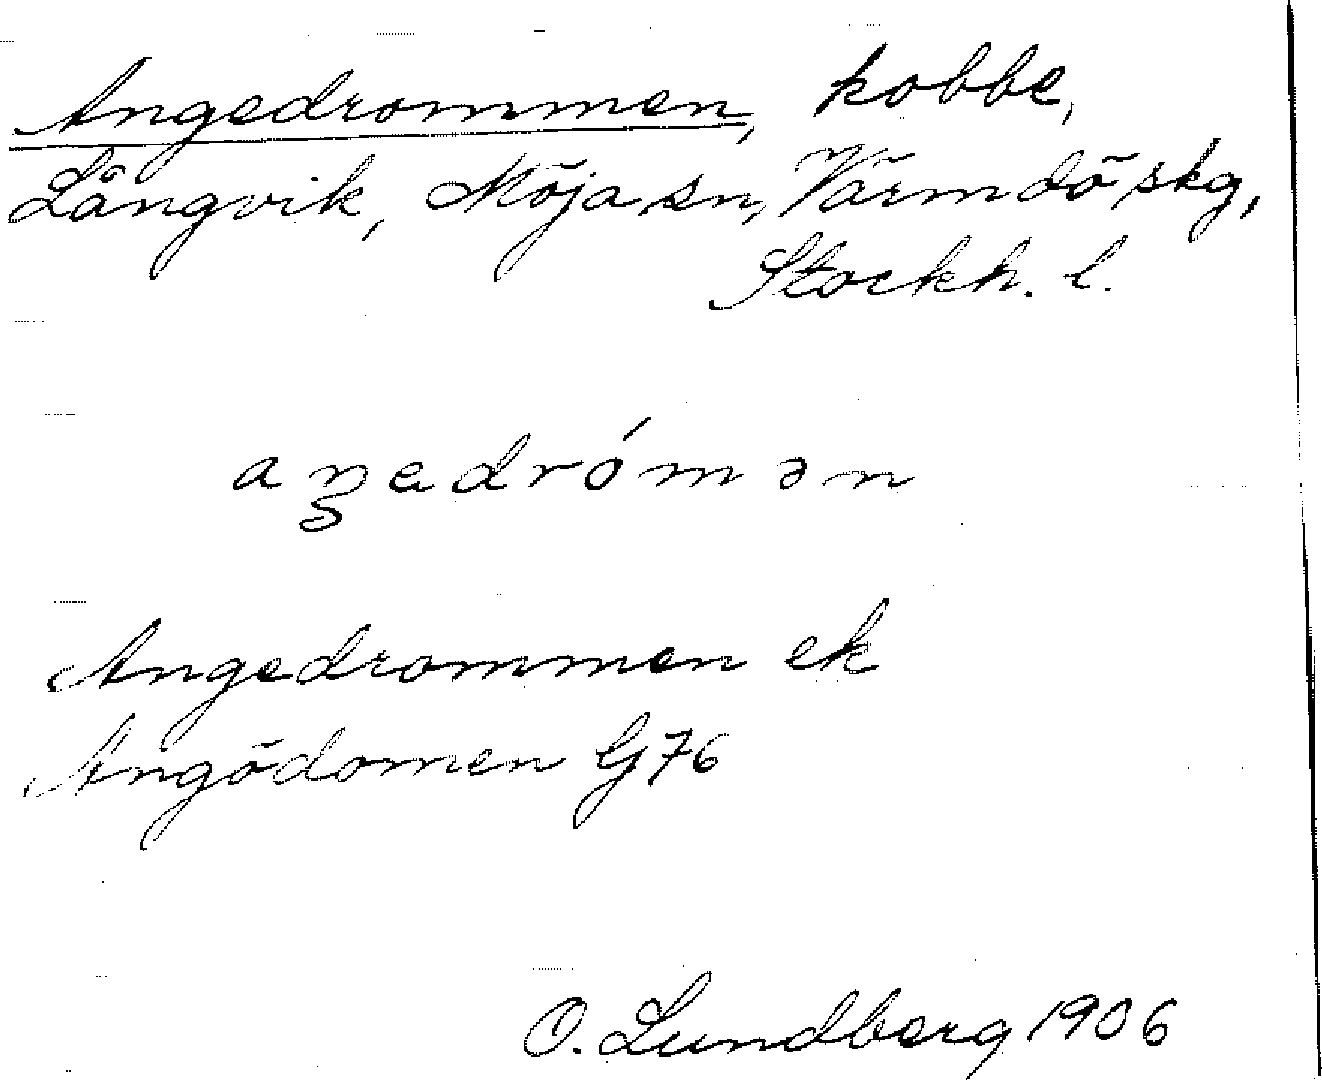 Angedrommen, kobbe,
Långvik, Möja sn, Värmdö skg,
Stockh. l.
aŋedrómən
Angedrommen ek
Angödomen G76
O. Lundberg 1906